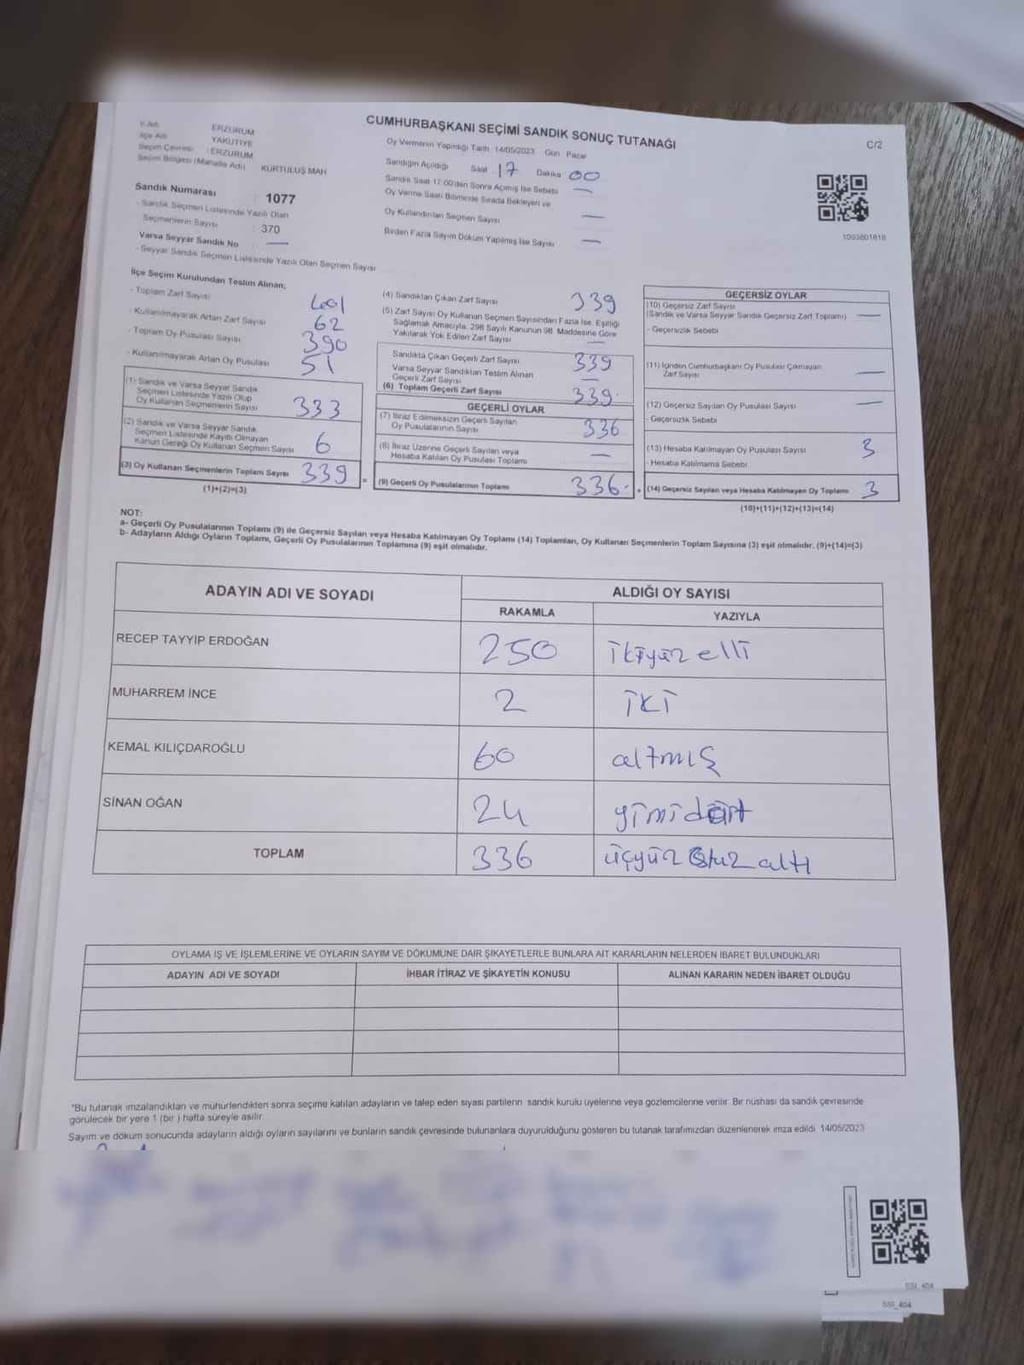 CUMHURBAŞKANI SEÇİMİ SANDIK SONUÇ TUTANAĞI
C/2
İl Adı ERZURUM
İlçe Adı YAKUTİYE
Seçim Çevresi : ERZURUM
Seçim Bölgesi (Mahalle Adı) KURTULUŞ MAH
Sandık Numarası 1077
- Sandık Seçmen Listesinde Yazılı Olan
Seçmenlerin Sayısı 370
Varsa Seyyar Sandık No —
- Seyyar Sandık Seçmen Listesinde Yazılı Olan Seçmen Sayısı
Oy Vermenin Yapıldığı Tarih 14/05/2023 Gün Pazar
Sandığın Açıldığı Saat 17 Dakika 00
Sandık Saat 17:00'den Sonra Açılmış İse Sebebi —
Oy Verme Saati Bitiminde Sırada Bekleyen ve
Oy Kullandırılan Seçmen Sayısı —
Birden Fazla Sayım Döküm Yapılmış İse Sayısı —
1003601618
İlçe Seçim Kurulundan Teslim Alınan;
- Toplam Zarf Sayısı 401
- Kullanılmayarak Artan Zarf Sayısı 62
- Toplam Oy Pusulası Sayısı 390
- Kullanılmayarak Artan Oy Pusulası 51
(1) Sandık ve Varsa Seyyar Sandık
Seçmen Listesinde Yazılı Olup
Oy Kullanan Seçmenlerin Sayısı 333
(2) Sandık ve Varsa Seyyar Sandık
Seçmen Listesinde Kayıtlı Olmayan
Kanun Gereği Oy Kullanan Seçmen Sayısı 6
(3) Oy Kullanan Seçmenlerin Toplam Sayısı 339
(1)+(2)=(3)
(4) Sandıktan Çıkan Zarf Sayısı 339
(5) Zarf Sayısı Oy Kullanan Seçmen Sayısından Fazla İse, Eşitliği
Sağlamak Amacıyla, 298 Sayılı Kanunun 98. Maddesine Göre
Yakılarak Yok Edilen Zarf Sayısı —
Sandıkta Çıkan Geçerli Zarf Sayısı 339
Varsa Seyyar Sandıktan Teslim Alınan
Geçerli Zarf Sayısı —
(6) Toplam Geçerli Zarf Sayısı 339
GEÇERLİ OYLAR
(7) İtiraz Edilmeksizin Geçerli Sayılan
Oy Pusulalarının Sayısı 336
(8) İtiraz Üzerine Geçerli Sayılan veya
Hesaba Katılan Oy Pusulası Toplamı —
= (9) Geçerli Oy Pusulalarının Toplamı 336
GEÇERSİZ OYLAR
(10) Geçersiz Zarf Sayısı
(Sandık ve Varsa Seyyar Sandık Geçersiz Zarf Toplamı) —
- Geçersizlik Sebebi
(11) İçinden Cumhurbaşkanı Oy Pusulası Çıkmayan
Zarf Sayısı —
(12) Geçersiz Sayılan Oy Pusulası Sayısı —
- Geçersizlik Sebebi
(13) Hesaba Katılmayan Oy Pusulası Sayısı 3
- Hesaba Katılmama Sebebi
+ (14) Geçersiz Sayılan veya Hesaba Katılmayan Oy Toplamı 3
(10)+(11)+(12)+(13)=(14)
NOT:
a- Geçerli Oy Pusulalarının Toplamı (9) ile Geçersiz Sayılan veya Hesaba Katılmayan Oy Toplamı (14) Toplamları, Oy Kullanan Seçmenlerin Toplam Sayısına (3) eşit olmalıdır. (9)+(14)=(3)
b- Adayların Aldığı Oyların Toplamı, Geçerli Oy Pusulalarının Toplamına (9) eşit olmalıdır.
ADAYIN ADI VE SOYADI ALDIĞI OY SAYISI
RAKAMLA YAZIYLA
RECEP TAYYİP ERDOĞAN 250 ikiyüz elli
MUHARREM İNCE 2 iki
KEMAL KILIÇDAROĞLU 60 altmış
SİNAN OĞAN 24 yimidört
TOPLAM 336 üçyüz otuz altı
OYLAMA İŞ VE İŞLEMLERİNE VE OYLARIN SAYIM VE DÖKÜMÜNE DAİR ŞİKAYETLERLE BUNLARA AİT KARARLARIN NELERDEN İBARET BULUNDUKLARI
ADAYIN ADI VE SOYADI İHBAR İTİRAZ VE ŞİKAYETİN KONUSU ALINAN KARARIN NEDEN İBARET OLDUĞU
*Bu tutanak imzalandıktan ve mühürlendikten sonra seçime katılan adayların ve talep eden siyasi partilerin sandık kurulu üyelerine veya gözlemcilerine verilir. Bir nüshası da sandık çevresinde
görülecek bir yere 1 (bir ) hafta süreyle asılır.
Sayım ve döküm sonucunda adayların aldığı oyların sayılarını ve bunların sandık çevresinde bulunanlara duyurulduğunu gösteren bu tutanak tarafımızdan düzenlenerek imza edildi. 14/05/2023
SSI_404
SSI_404